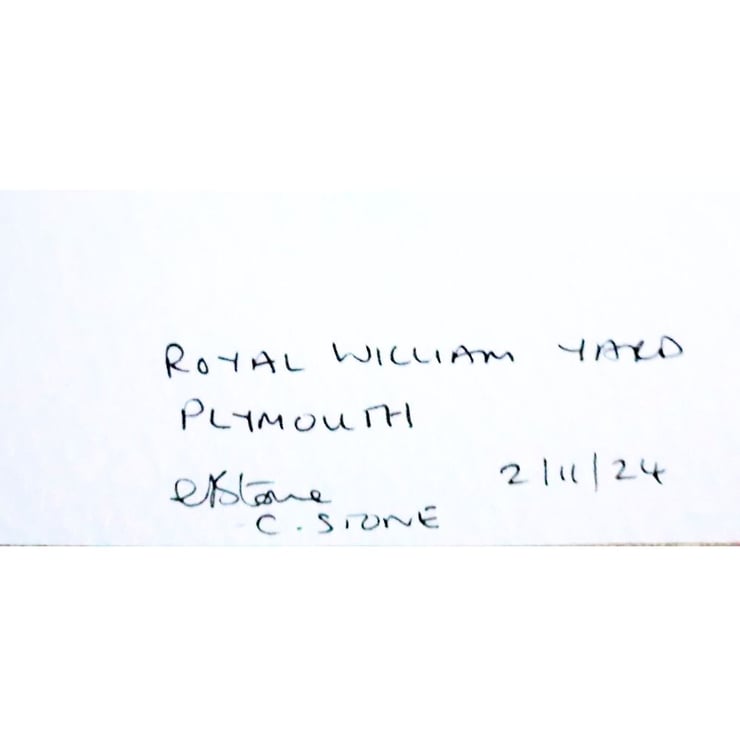 ROYAL WILLIAM YARD
PLYMOUTH
2/11/24
C. STONE